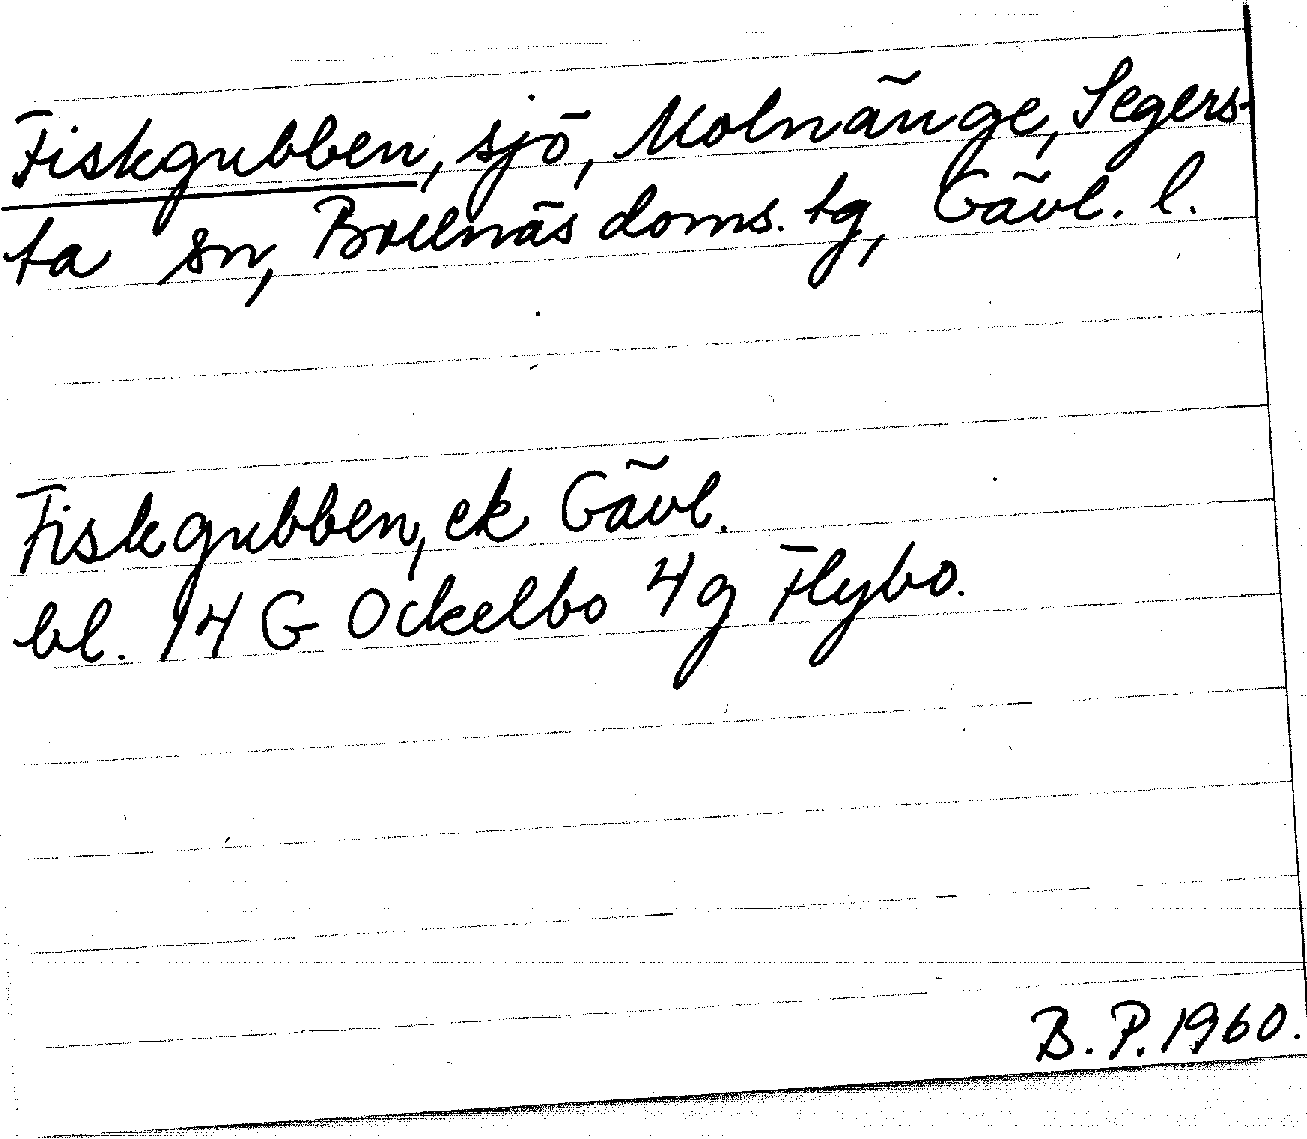 Fiskgubben, sjö, Molnänge, Segers-
ta sn, Bollnäs doms. tg, Gävl. l.
Fiskgubben, ek Gävl.
bl. 14 G Ockelbo 4g Flybo.
B. P. 1960.